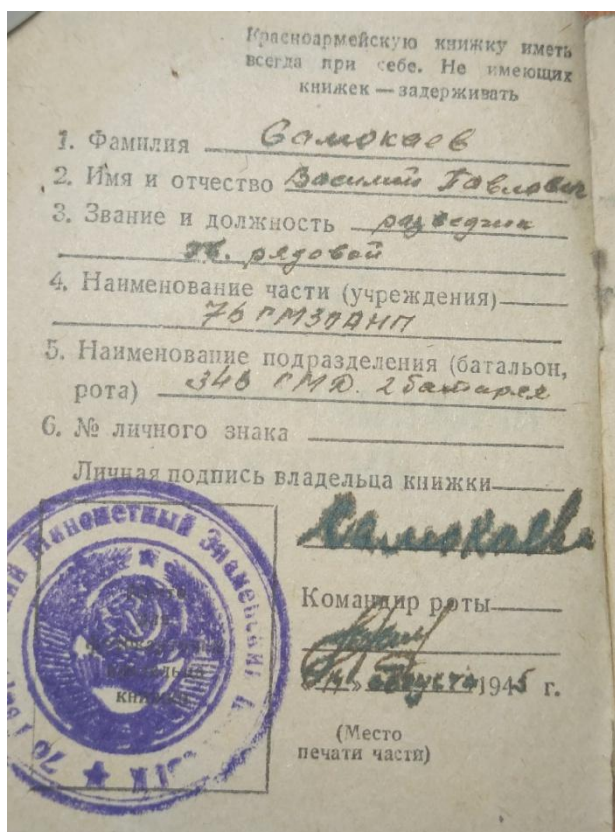 Красноармейскую книжку иметь
всегда при себе. Не имеющих
книжек — задерживать
1. Фамилия Самокаев
2. Имя и отчество Василий Павлович
3. Звание и должность разведчик
гв. рядовой
4. Наименование части (учреждения)
5. Наименование подразделения (батальон,
рота) 346 ГМД. 2 батарея
6. № личного знака
Личная подпись владельца книжки
Самокаев
Командир роты
августа 1945 г.
(Место
печати части)
Минометный Знаменский